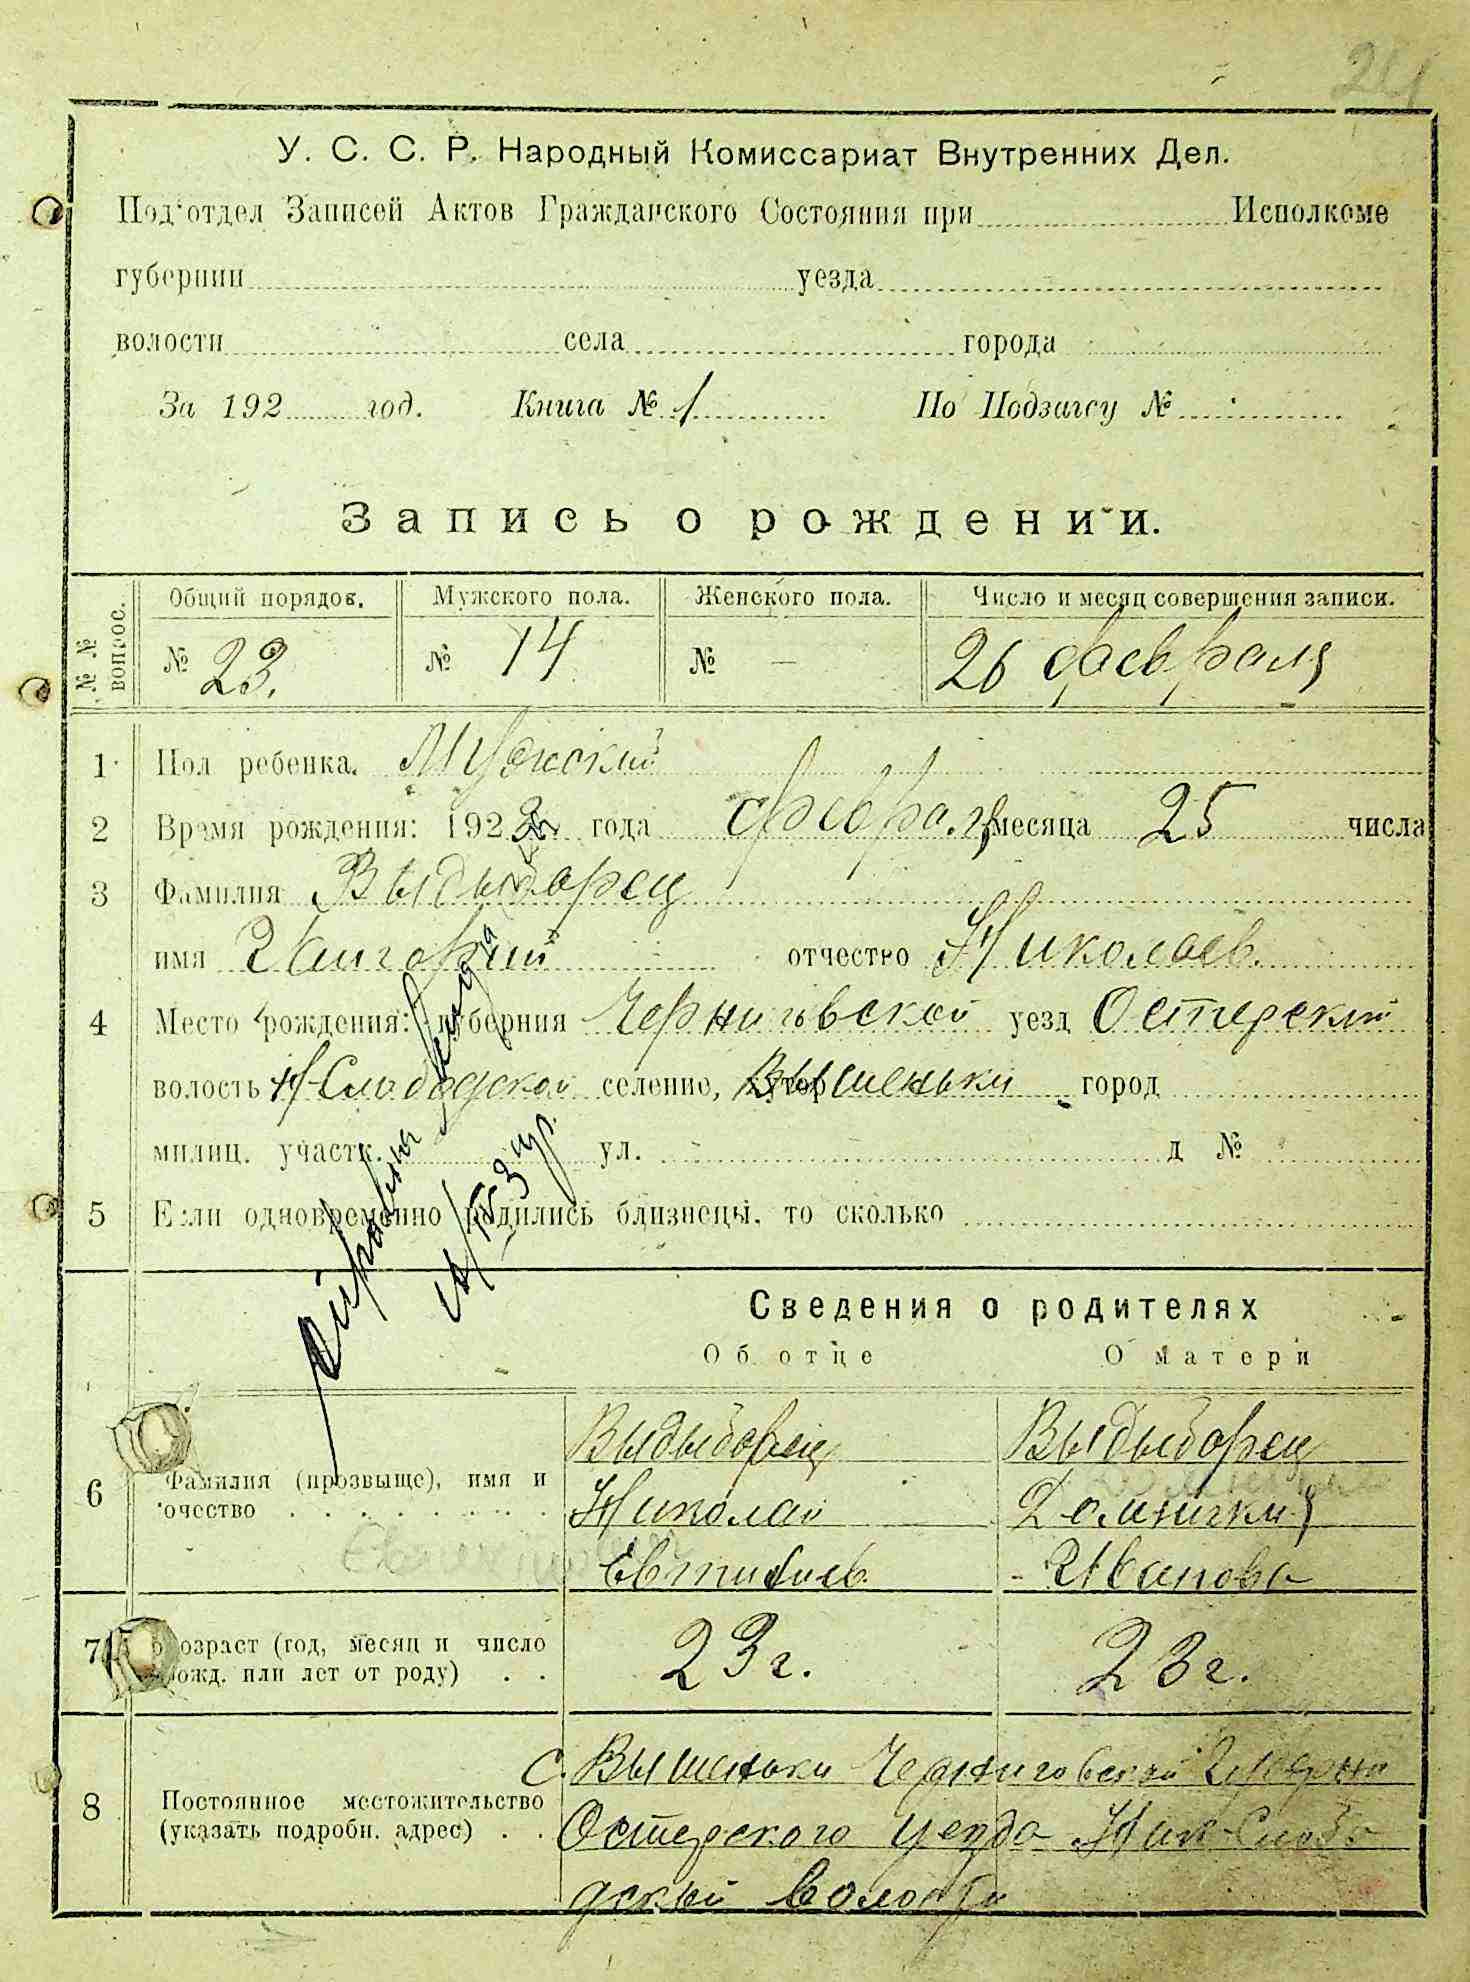 24
У. С. С. Р. Народный Комиссариат Внутренних Дел.
Под‘отдел Записей Актов Гражданского Состояния при Исполкоме
губернии уезда
волости села города
За 192 год. Книга № 1 По Подзагсу №
Запись о рождении.
№ № вопрос. Общий порядов. Мужского пола. Женского пола. Число и месяц совершения записи.
№ 23. № 14 № — 26 февраля
1 Пол ребенка. Мужский
2 Время рождения: 192 года февраля месяца 25 числа
3 Фамилия Выдыборец
имя Григорий отчество Николаев.
4 Место рождения: губерния Черниговской уезд Остерский
волость Н-Слободской селение, хутор Вышеньки город
милиц. участк. ул. д №
5 Если одновременно родились близнецы, то сколько
Сведения о родителях
Об отце О матери
Выдыборец Выдыборец
6 Фамилия (прозвыще), имя и Николай
очество Евтихиев. Иванова
7 Возраст (год, месяц и число 23 г. 23 г.
рожд. или лет от роду)
С. Вышеньки Черниговской Губернии
8 Постоянное местожительство
(указать подробн. адрес) Остерского уезда Ник-Слобо
дской волости